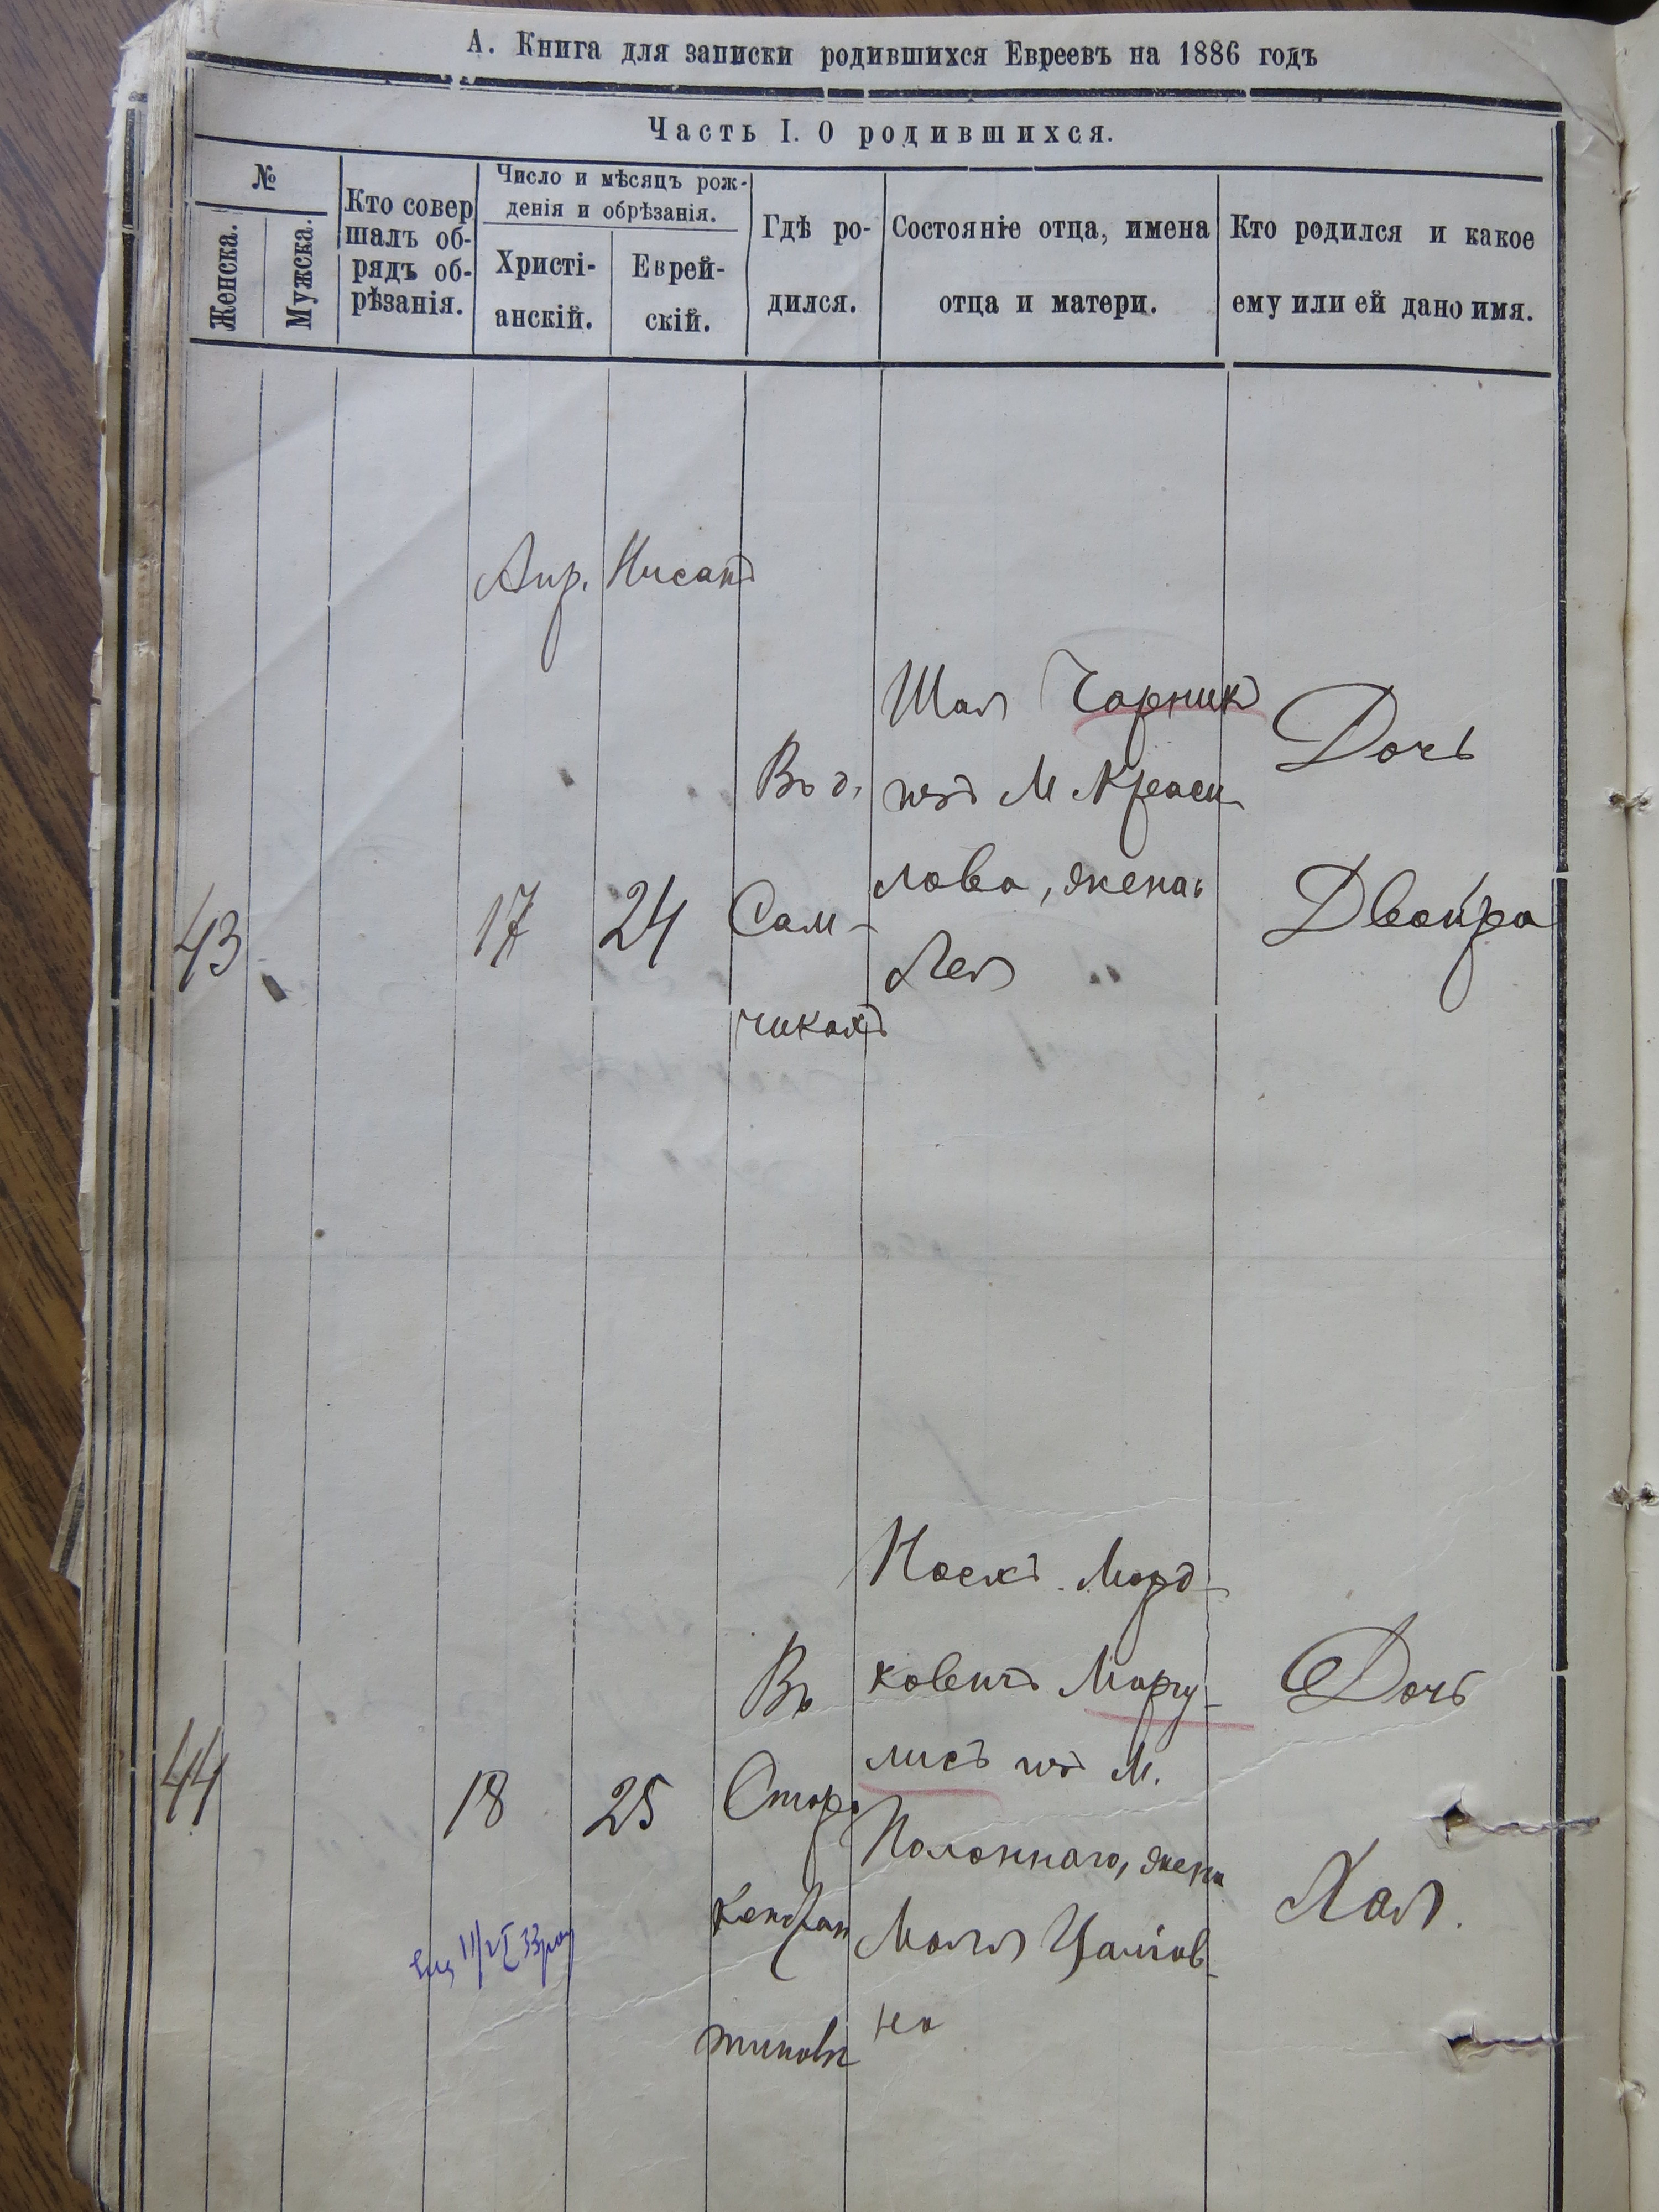 А. Книга для записки родившихся Евреевъ на 1886 годъ
Часть I. О родившихся.
№
Женска.
Мужска.
Кто совер
шалъ об-
рядъ об-
рѣзанія.
Число и мѣсяцъ рож-
денія и обрѣзанія.
Христі-
анскій.
Еврей-
скій.
Гдѣ ро-
дился.
Состояніе отца, имена
отца и матери.
Кто родился и какое
ему или ей дано имя.
Апр.
Нисанъ
43
17
24
Въ д.
Сам-
чикахъ
Шая Чарникъ
изъ М Краси-
лова, жена
Лея
Дочь
Двойра
44
18
25
Въ
Старо
Констан
тиновѣ
Иоскъ Морд-
ковичъ Маргу-
лисъ изъ М.
Полоннаго, жена
Малля
на
Дочь
Хая.